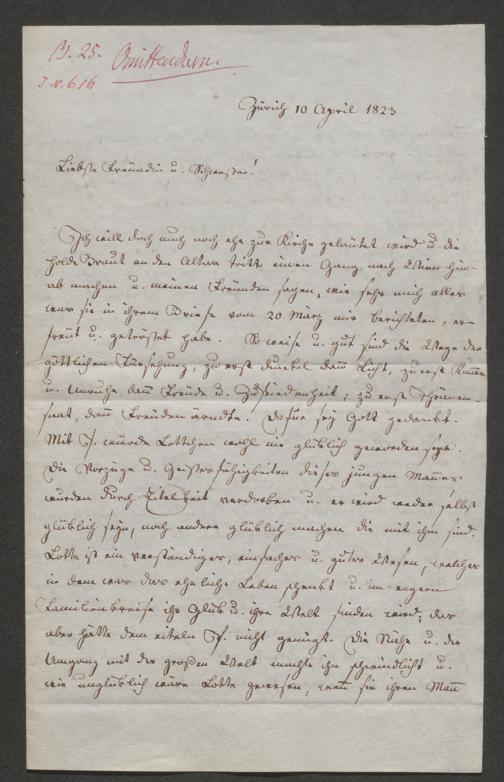 B. 25.
J. N. 616
Zürich 10 April 1823
Liebste Freundin u. Schwester!
Ich will doch auch noch ehe zur Kirche geläutet wird u. die
holde Braut an den Altar tritt einen Gang nach Wien hin-
ab machen u. meinen Freunden sagen, wie sehr mich alles
was sie in ihrem Briefe vom 20 März mir berichteten, er-
freut u. getröstet habe. So weise u. gut sind die Wege der
göttlichen Fürsehung, zu erst dunkel dann Licht, zu erst Kummer
u. Unruhe dann Freude u. Zufriedenheit; zu erst Thränen-
saat, dann Freudenärndte. Dafür sey Gott gedankt.
Mit F. würde Lottchen wohl nie glüklich geworden seyn.
Die Vorzüge u. Geistesfähigkeiten dieses jungen Mannes
wurden durch Eitelkeit verdorben u. er wird weder selbst
glüklich seyn, noch andere glüklich machen die mit ihm sind.
Lotte ist ein verständiges, einfaches u. gutes Wesen, welches
in dem was das eheliche Leben schenkt u. im engern
Familienkreise ihr Glük u. ihre Welt finden wird; das
aber hätte dem eiteln F. nicht genügt. Die Nähe u. der
Umgang mit der großen Welt machte ihn schwindlicht u.
wie unglüklich wäre Lotte gewesen, wenn sie ihren Mann